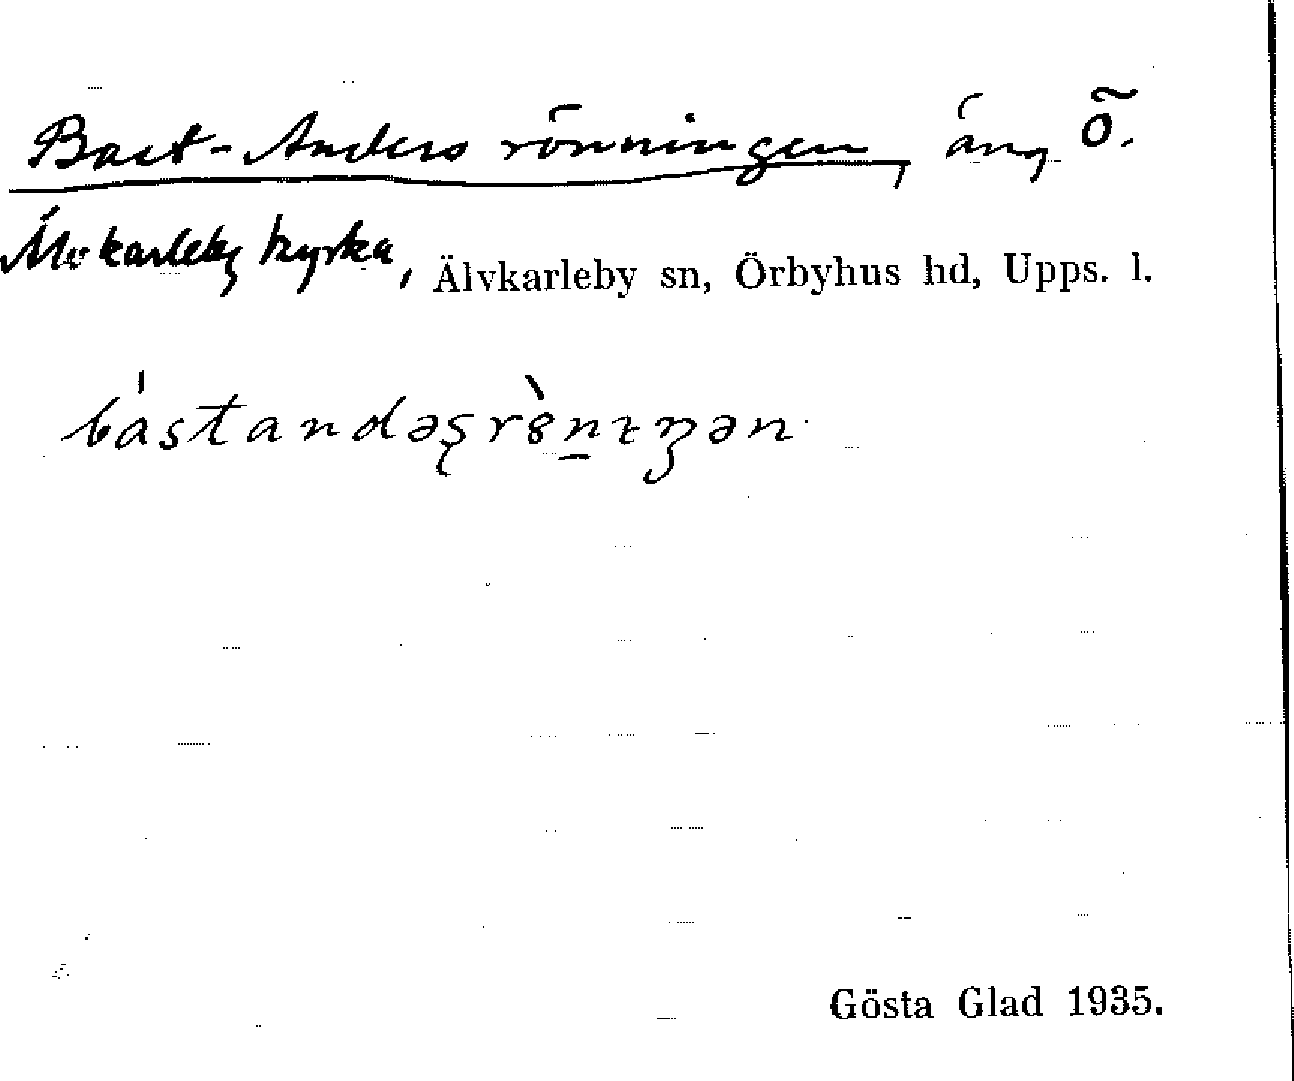 Bast-Anders rönningen, äng Ö.
Älvkarleby kyrka, Älvkarleby sn, Örbyhus hd, Upps. l.
Gösta Glad 1935.